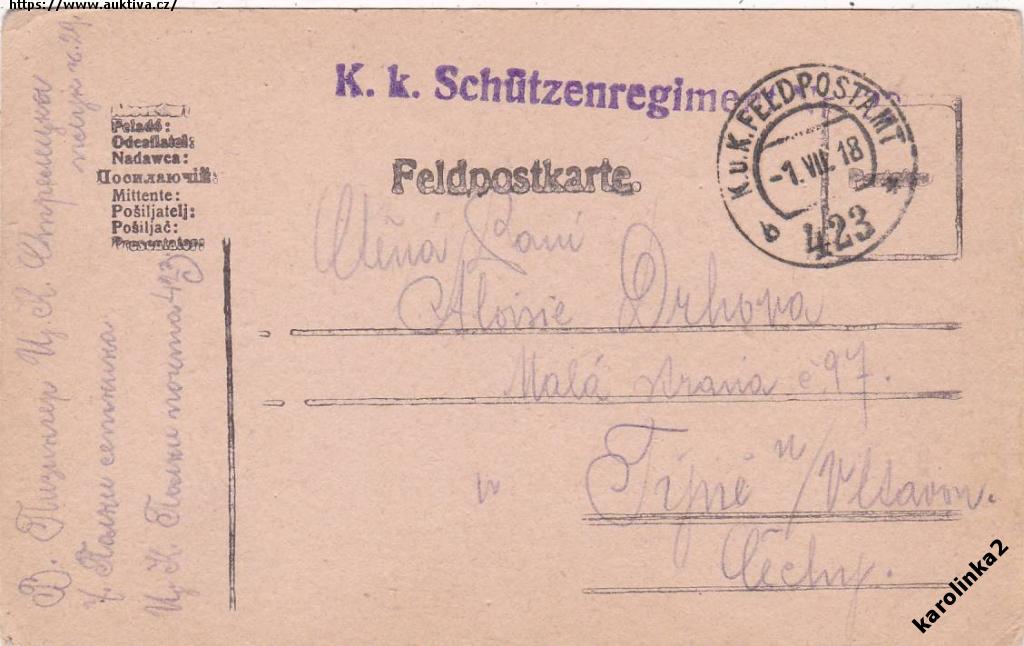 https://www.auktiva.cz/
K. k. Schützenregime
K.u.K. FELDPOSTAMT
-1. VII. 18
b 423
Feldpostkarte.
Feladó:
Odesílatel:
Nadawca:
Посилаючій:
Mittente:
Pošiljatelj:
Pošiljač:
Presentator:
Ctěná Paní
Aloisie Drhova
Malá strana č 97.
v Týně n/Vltavou.
Čechy.
В. Пизингер Ц. К.
ч.
Ц. К. почта 423
karolinka2